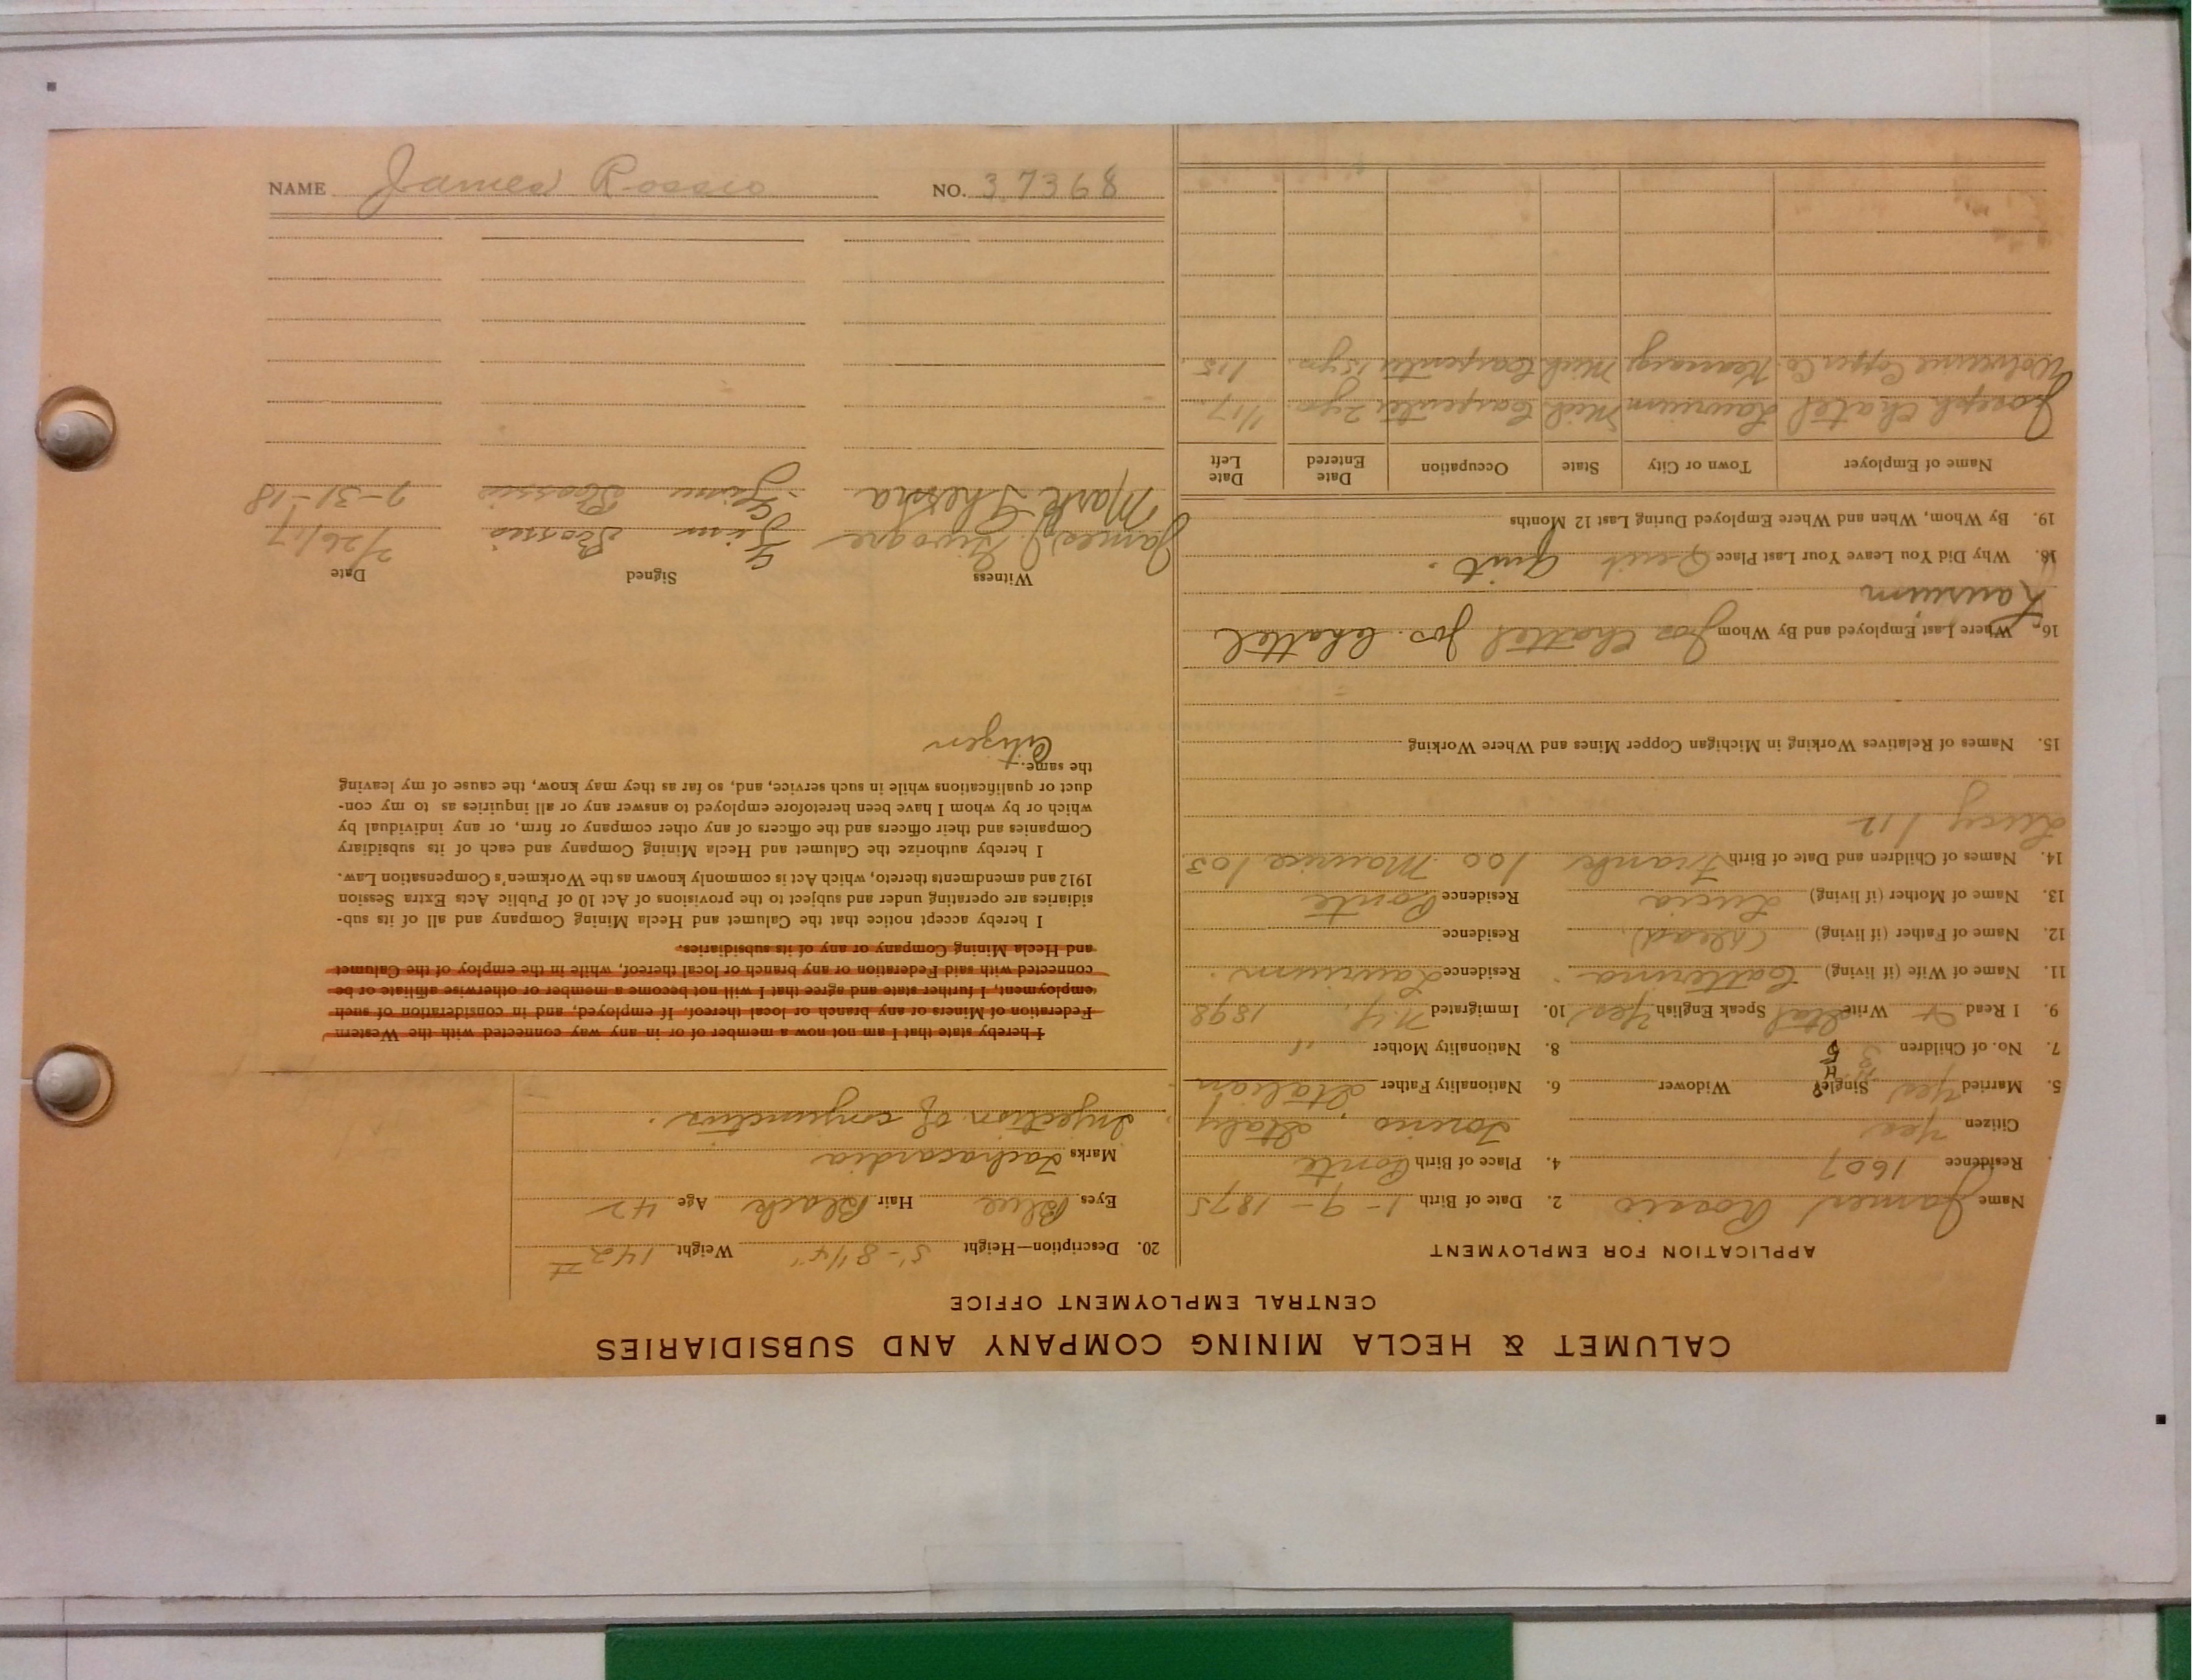 NAME James Rossio NO. 37368
CALUMET & HECLA MINING COMPANY AND SUBSIDIARIES
CENTRAL EMPLOYMENT OFFICE
APPLICATION FOR EMPLOYMENT
Name James Rossio 2. Date of Birth 1-9-1875
Residence 1607 4. Place of Birth Ponte
Citizen Yes Torino, Italy
5. Married Yes Single Widower 6. Nationality Father Italian
7. No. of Children 3 8. Nationality Mother "
9. I Read & Write Ital Speak English Yes 10. Immigrated N.Y. 1898
11. Name of Wife (if living) Catterina Residence Laurium.
12. Name of Father (if living) (Dead) Residence
13. Name of Mother (if living) Lucia Residence Ponte
14. Names of Children and Date of Birth Frank 100 Maurice 103
Lucy 112
15. Names of Relatives Working in Michigan Copper Mines and Where Working
16. Where Last Employed and By Whom Jos Chattel Jos. Chattel
Laurium
18. Why Did You Leave Your Last Place Quit Quit.
19. By Whom, When and Where Employed During Last 12 Months
Name of Employer Town or City State Occupation Date Entered Date Left
Joseph Chatel Laurium Mich Carpenter 2 yrs. 1/17
Wolverine Copper Co. Kearsarge Mich Carpenter 15 yrs. 115.
20. Description—Height 5'-8 1/4" Weight 142 #
Eyes Blue Hair Black Age 42
Marks Tachacardia
Injection of conjunctiva.
I hereby state that I am not now a member of or in any way connected with the Western
Federation of Miners or any branch or local thereof. If employed, and in consideration of such
employment, I further state and agree that I will not become a member or otherwise affiliate or be
connected with said Federation or any branch or local thereof, while in the employ of the Calumet
and Hecla Mining Company or any of its subsidiaries.
I hereby accept notice that the Calumet and Hecla Mining Company and all of its sub-
sidiaries are operating under and subject to the provisions of Act 10 of Public Acts Extra Session
1912 and amendments thereto, which Act is commonly known as the Workmen's Compensation Law.
I hereby authorize the Calumet and Hecla Mining Company and each of its subsidiary
Companies and their officers and the officers of any other company or firm, or any individual by
which or by whom I have been heretofore employed to answer any or all inquiries as to my con-
duct or qualifications while in such service, and, so far as they may know, the cause of my leaving
the same.
Citizen
Witness Signed Date
James J. Rossio 2/26/17
Mark Rossio 7-31-18